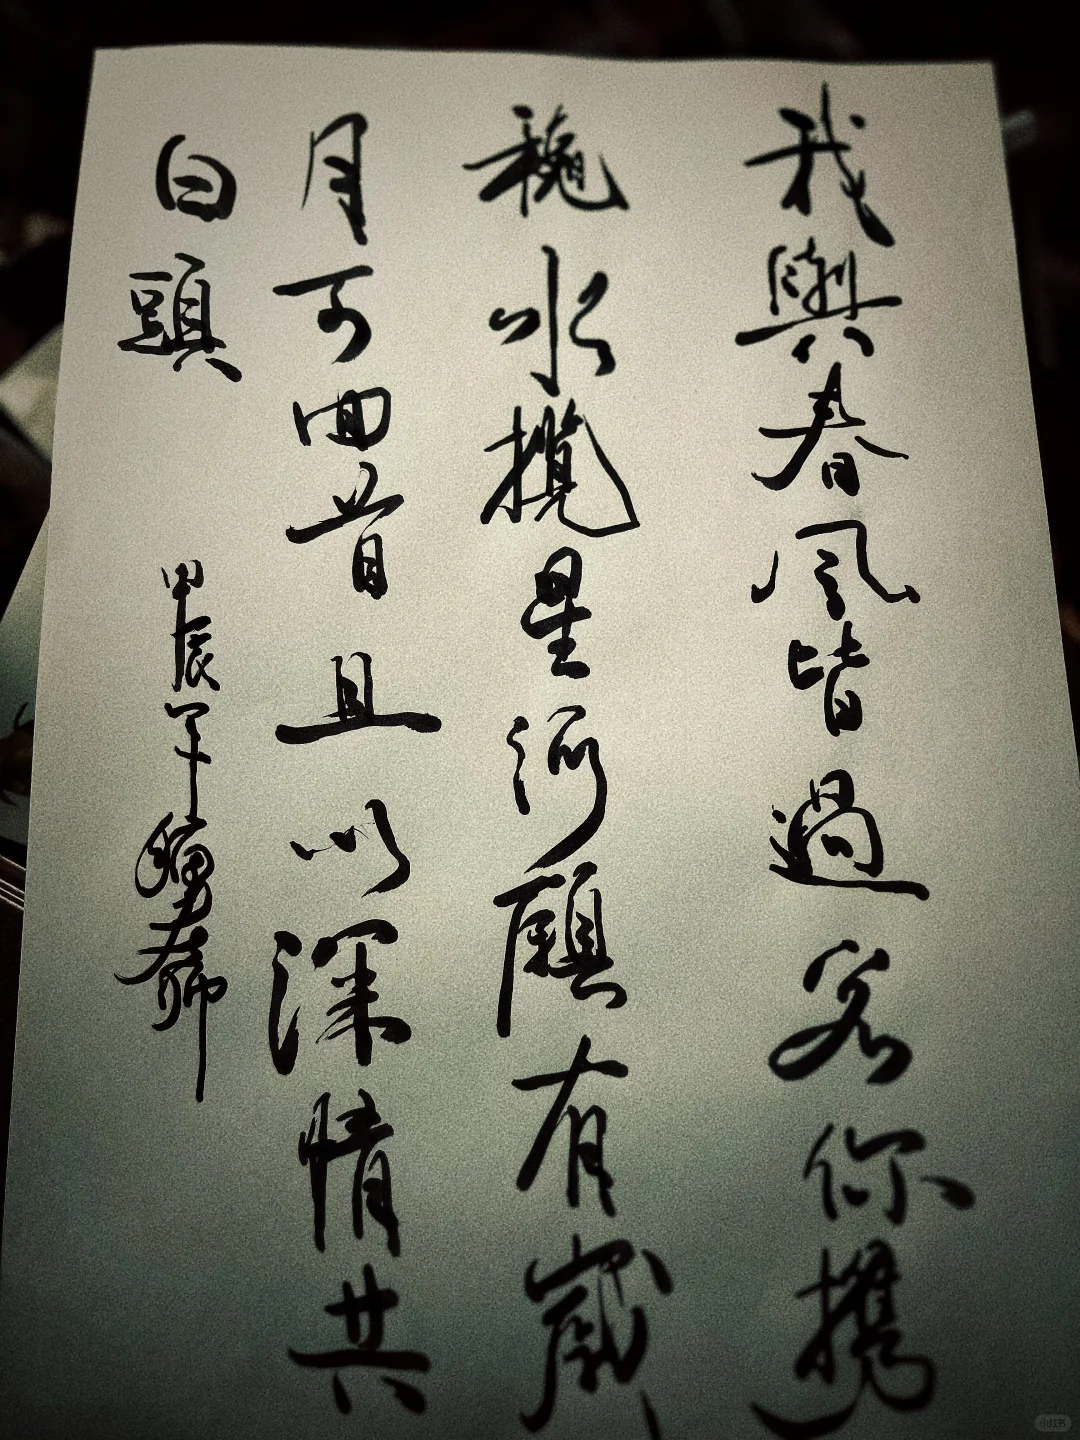 我與春風皆過客你攜
秋水攬星河願有歲
月可回首且以深情共
白頭
甲辰年
小红书